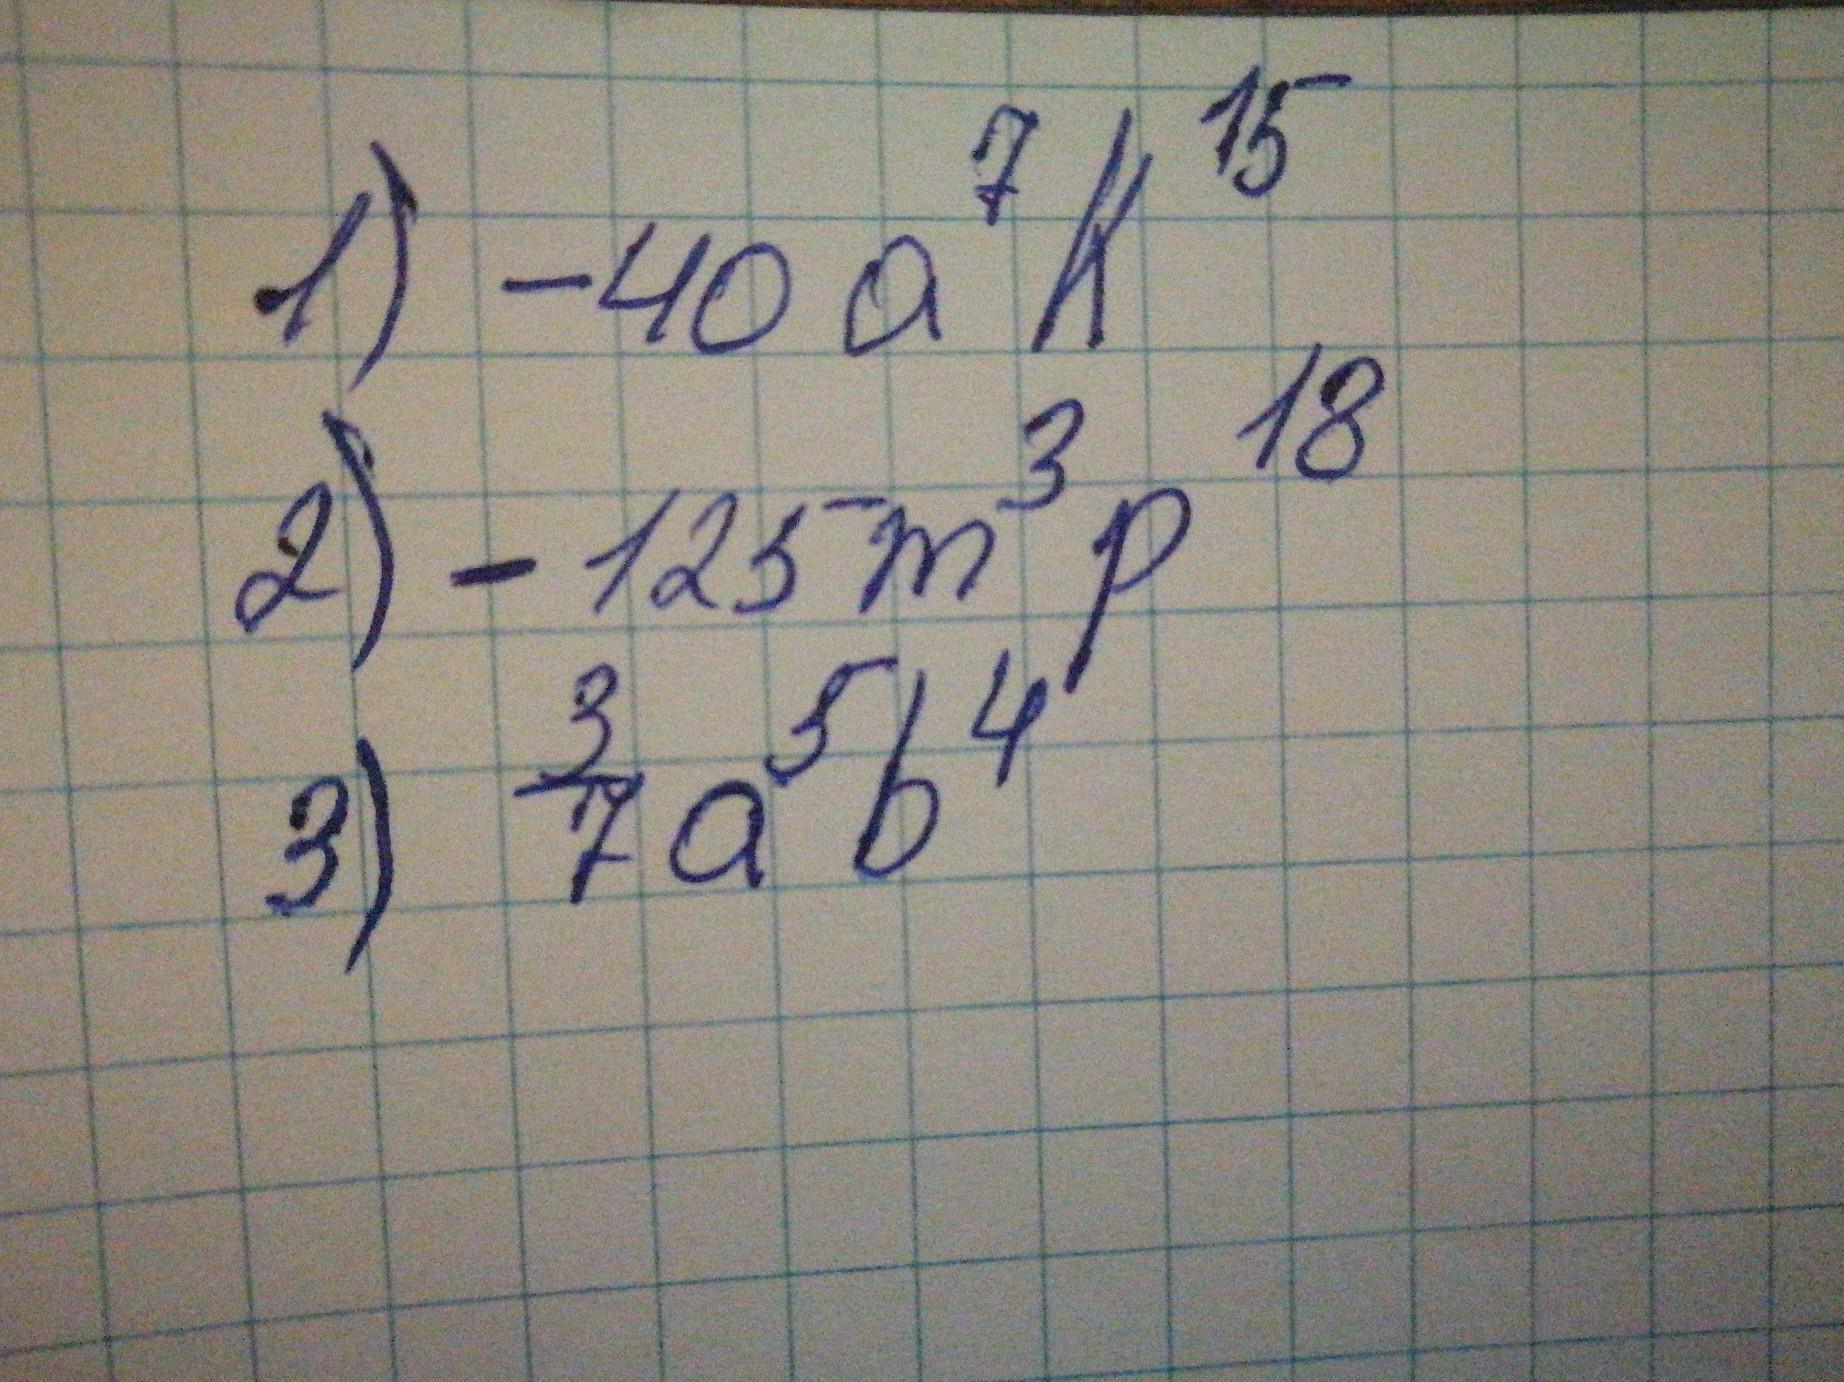 1) -40 a⁷ k¹⁵
2) - 125 m³ p¹⁸
3) 3/7 a⁵ b⁴